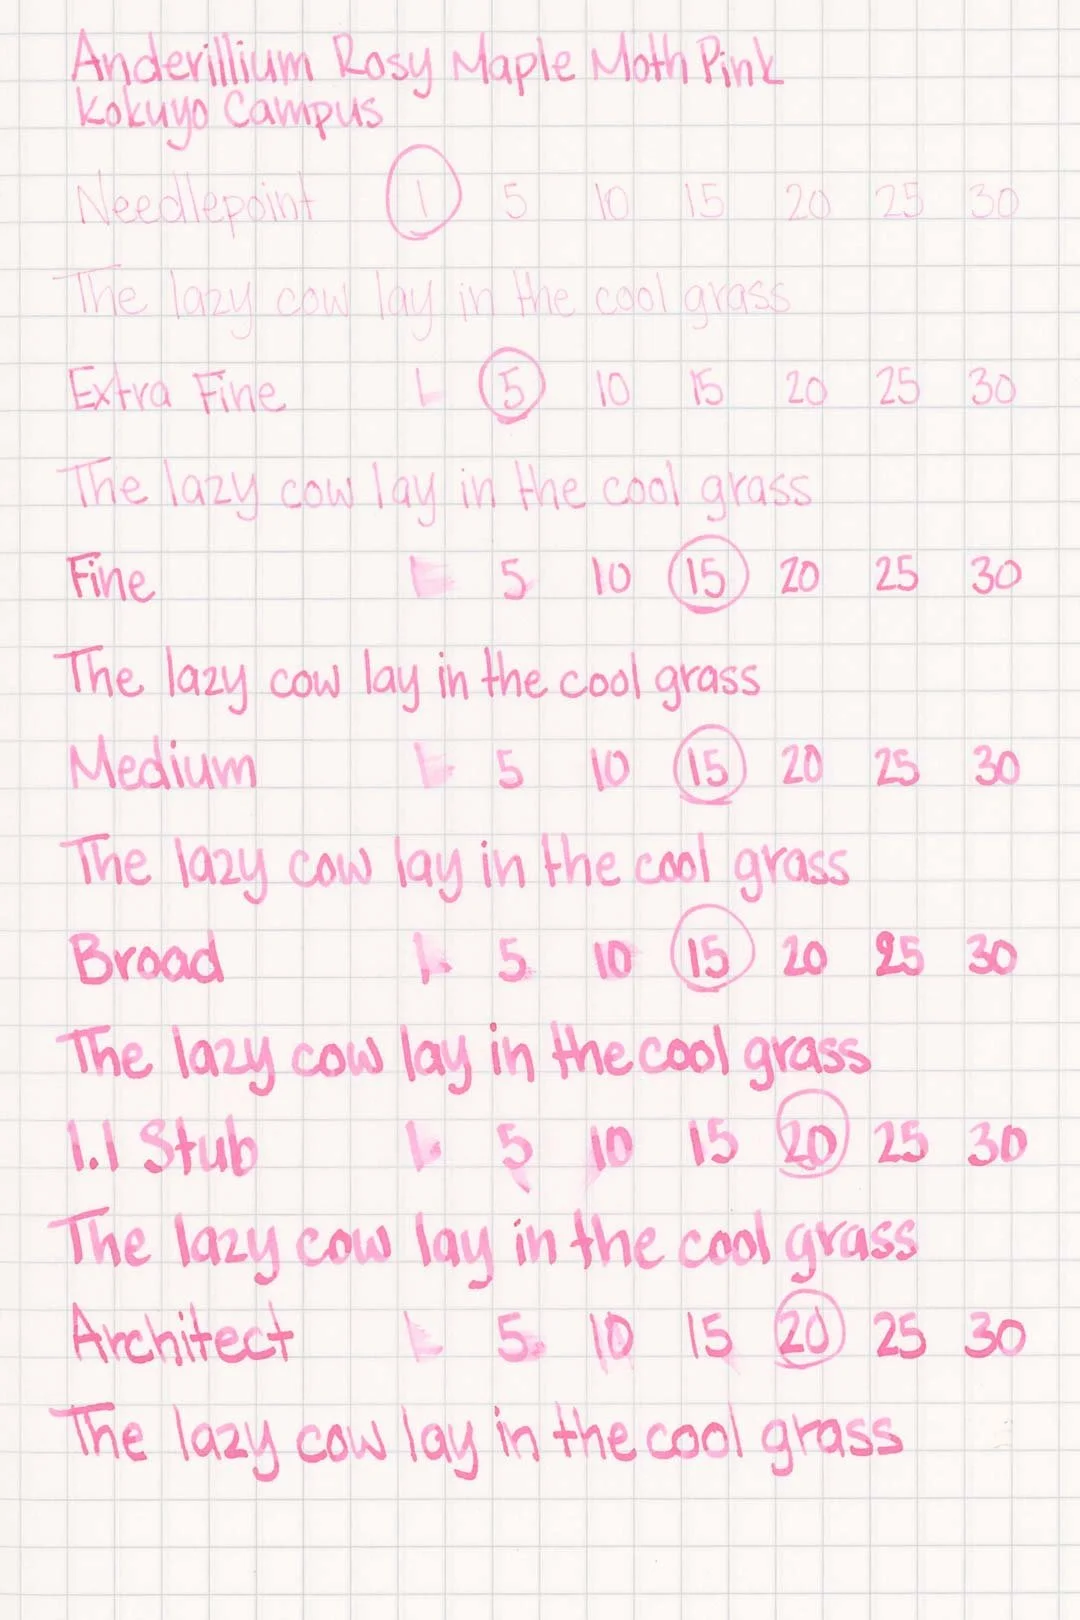 Anderillium Rosy Maple Moth Pink
Kokuyo Campus
Needlepoint 1 5 10 15 20 25 30
The lazy cow lay in the cool grass
Extra Fine 1 5 10 15 20 25 30
The lazy cow lay in the cool grass
Fine 1 5 10 15 20 25 30
The lazy cow lay in the cool grass
Medium 1 5 10 15 20 25 30
The lazy cow lay in the cool grass
Broad 1 5 10 15 20 25 30
The lazy cow lay in the cool grass
1.1 Stub 1 5 10 15 20 25 30
The lazy cow lay in the cool grass
Architect 1 5 10 15 20 25 30
The lazy cow lay in the cool grass